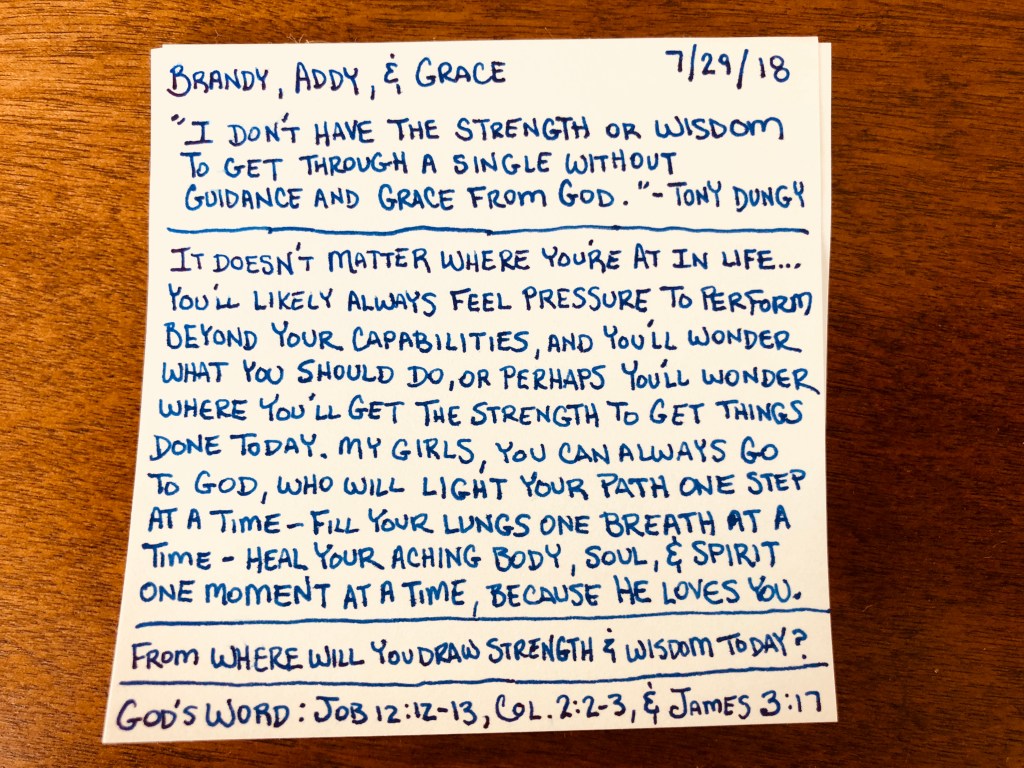 BRANDY, ADDY, & GRACE 7/29/18
"I DON'T HAVE THE STRENGTH OR WISDOM
TO GET THROUGH A SINGLE WITHOUT
GUIDANCE AND GRACE FROM GOD." - TONY DUNGY
IT DOESN'T MATTER WHERE YOU'RE AT IN LIFE...
YOU'LL LIKELY ALWAYS FEEL PRESSURE TO PERFORM
BEYOND YOUR CAPABILITIES, AND YOU'LL WONDER
WHAT YOU SHOULD DO, OR PERHAPS YOU'LL WONDER
WHERE YOU'LL GET THE STRENGTH TO GET THINGS
DONE TODAY. MY GIRLS, YOU CAN ALWAYS GO
TO GOD, WHO WILL LIGHT YOUR PATH ONE STEP
AT A TIME - FILL YOUR LUNGS ONE BREATH AT A
TIME - HEAL YOUR ACHING BODY, SOUL, & SPIRIT
ONE MOMENT AT A TIME, BECAUSE HE LOVES YOU.
FROM WHERE WILL YOU DRAW STRENGTH & WISDOM TODAY?
GOD'S WORD: JOB 12:12-13, COL. 2:2-3, & JAMES 3:17